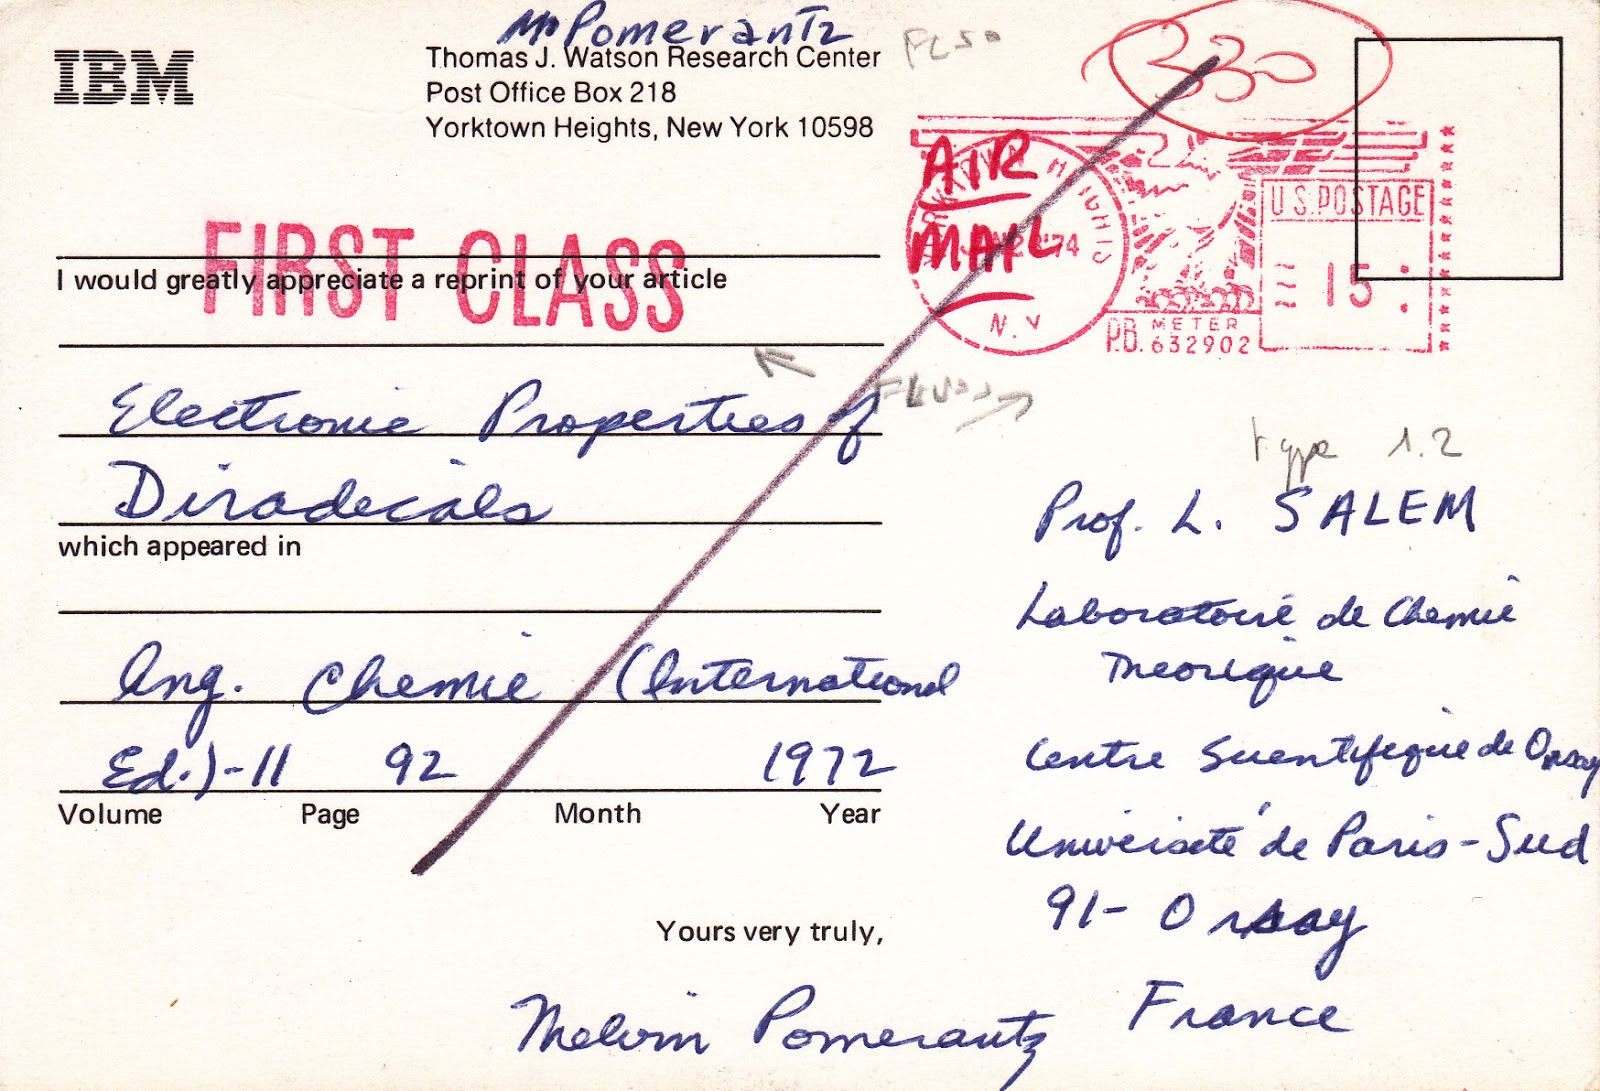 M Pomerantz
IBM
Thomas J. Watson Research Center
Post Office Box 218
Yorktown Heights, New York 10598
330
AIR
MAIL
'74
N.Y
U.S. POSTAGE
15
P.B. METER
632902
FIRST CLASS
I would greatly appreciate a reprint of your article
Electronic Properties of
Diradicals
which appeared in
Ang. Chemie (International
Ed.)-11 92 1972
Volume Page Month Year
Yours very truly,
Melvin Pomerantz
type 1.2
Prof. L. SALEM
Laboratoire de Chemie
Theorique
Centre Scientifique de Orsay
Université de Paris-Sud
91- Orsay
France